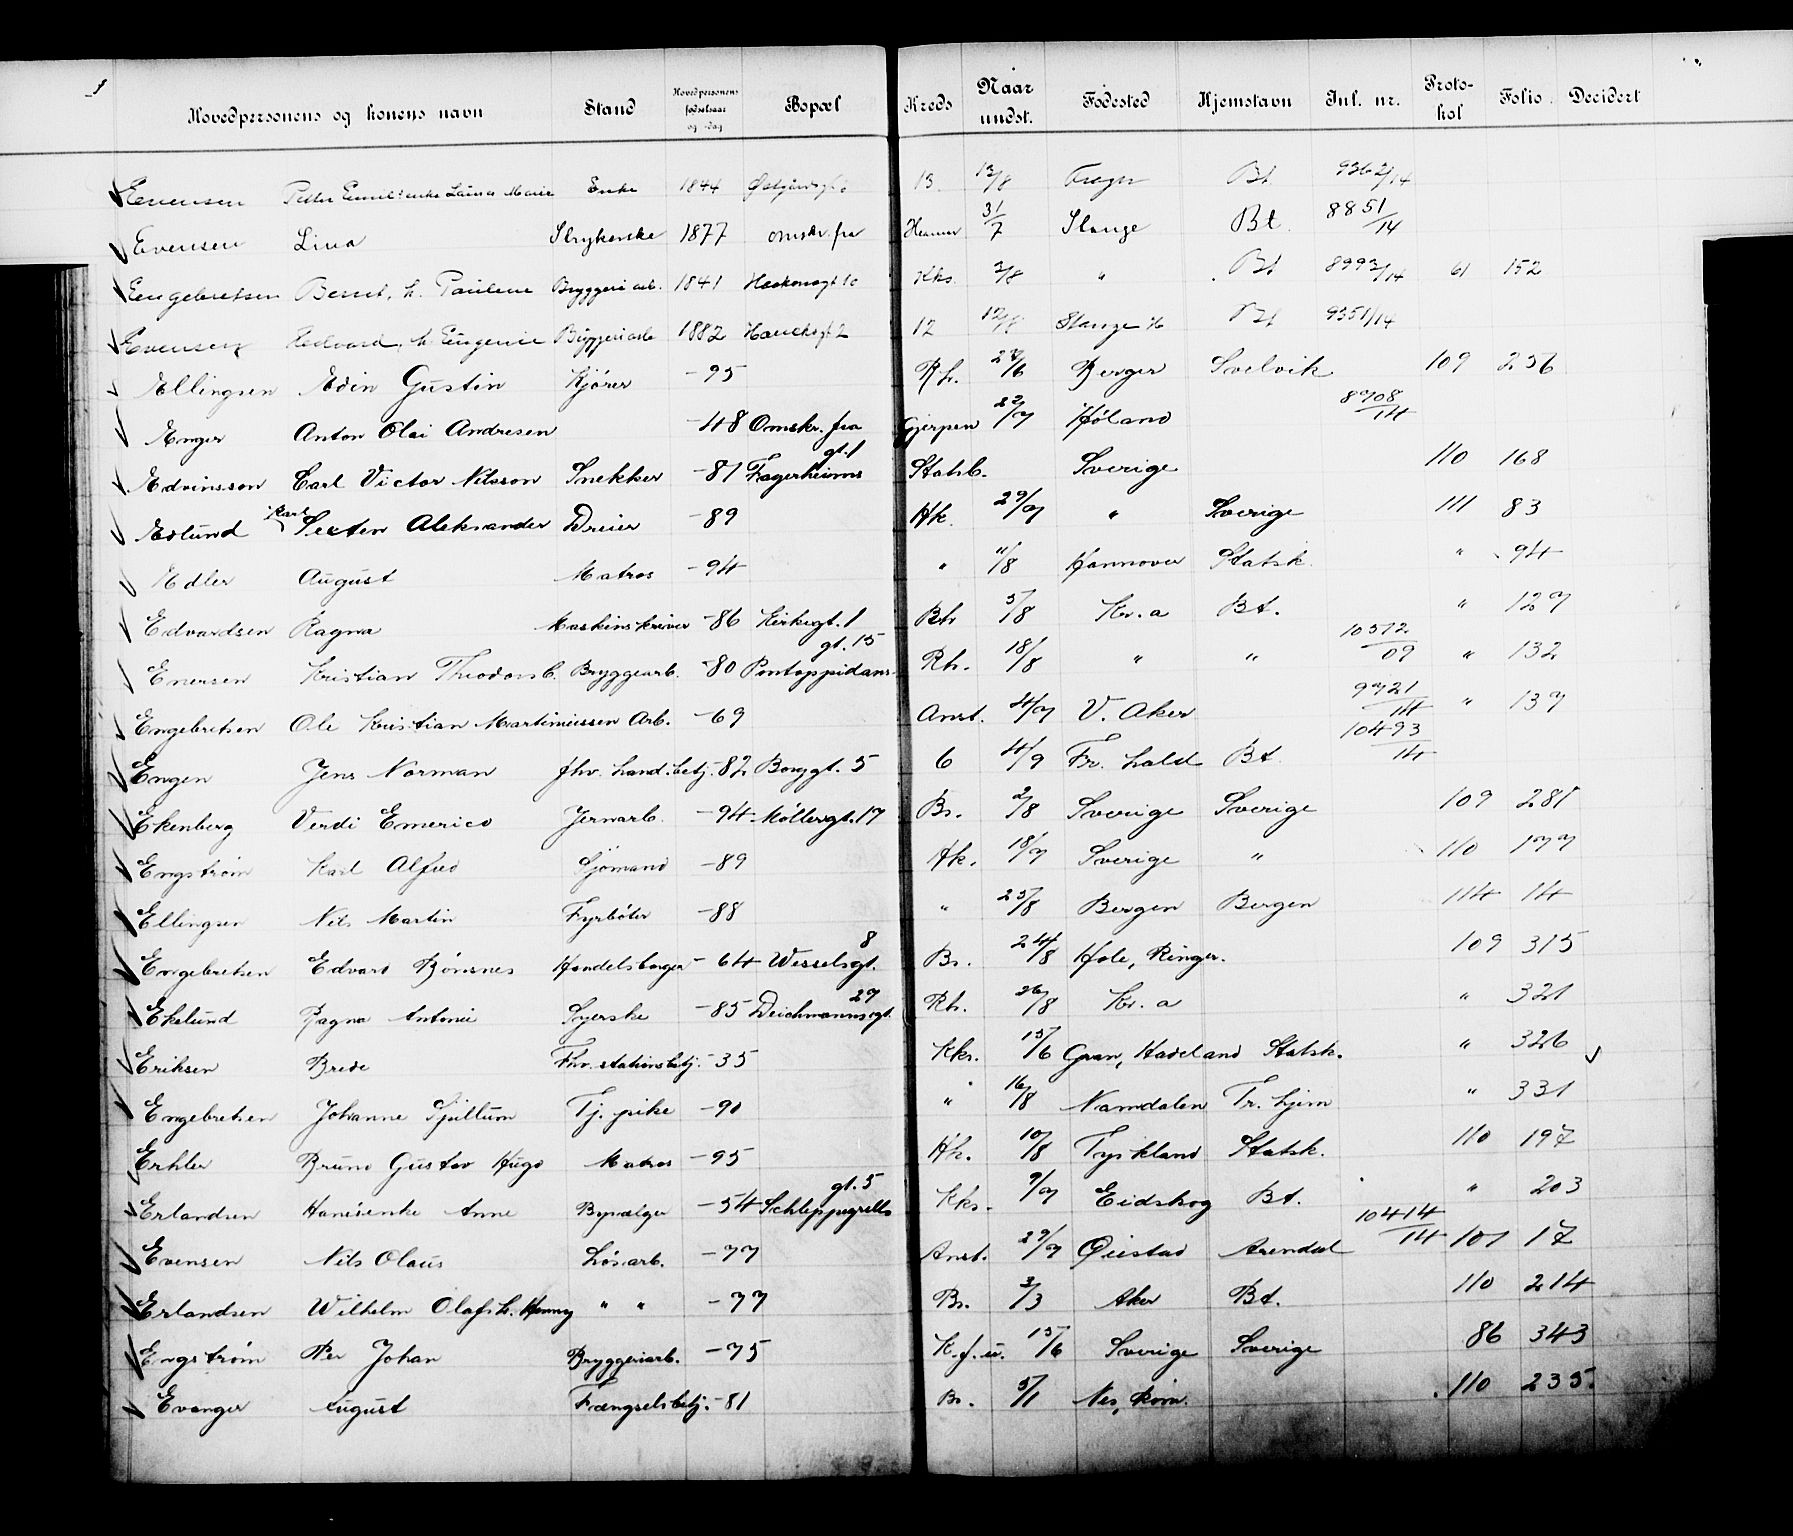 Hovedpersonens og konens navn Stand Hovedpersonens fødselsaar og -dag Bopæl Kreds Naar undst. Fødested Hjemstavn Jnl. nr. Proto-kol Folio Decidert
Evensen Petter Emil's enke Laura Marie Enke 1844 13. 12/8 Bt 9362/14
Evensen Lina Strykerske 1877 omskr. fra Hamar 31/7 Stange Bt. 8851/14
Engebretsen Bernt, h. Pauline Bryggeriarb. 1841 Haakonsgt 10 Kks. 3/8 " Bt 8993/14 61 152
Evensen Hedvard, h. Eugenie Bryggeriarb 1882 Hauchsgt 2 12 12/8 Stange H Bt 9351/14
Ellingsen Edin Gustin Kjører -95 Rh. 27/6 Berger Svelvik 109 256
Enger Anton Olai Andresen -48 Omskr. fra Gjerpen 22/7 Høland 8708/14
Edvinsson Carl Victor Nilsson Snekker -81 Fagerheims gt. 1 Statsb. Sverige 110 168
Edlund Karl Sexten Aleksander Dreier -89 Hk. 29/7 " Sverige 111 83
Edler August Matros -94 " 11/8 Hannover Statsk. " 94
Edvardsen Ragna Maskinskriver -86 Kirkegt. 1 Bh 5/8 Kr.a Bt. " 127
Enersen Kristian Theodor h. Bryggearb. -80 Pontoppidans gt. 15 Rh. 18/8 " " 10572/09 " 132
Engebretsen Ole Kristian Martiniussen Arb. -69 Anst. 4/7 V. Aker 9721/14 " 137
Engen Jens Norman fhv. hand.betj. -82 Borggt. 5 6 4/9 Fr. hald Bt. 10493/14
Ekenberg Verdi Emerico Jernarb. -94 Møllergt. 17 Br. 2/8 Sverige Sverige 109 281
Engstrøm Karl Alfred Sjömand -89 Hk. 18/7 Sverige " 110 177
Ellingsen Nils Martin Fyrbøter -88 " 25/8 Bergen Bergen 114 14
Engebretsen Edvard Bönsnes Handelsborger -64 Wesselsgt. 8 Br. 24/8 Hole, Ringer. 109 315
Ekelund Ragna Antonie Syerske -85 Deichmannsgt. 27 Rh. 26/8 Kr. a " 321
Eriksen Brede Fhv. stationsbetj. -35 Kks. 15/6 Gran, Hadeland Statsk. " 326
Engebretsen Johanne Spillum Tj. pike -90 " 16/8 Namdalen Tr. hjem " 331
Erhler Bruno Gustav Hugo Matros -95 Hk. 10/8 Tyskland Statsk. 110 197
Erlandsen Hans's enke Anne Bysælger -54 Schleppegrells gt. 5 Kks. 9/7 Eidskog Bt. " 203
Evensen Nils Olaus Løsarb. -77 Anst. 29/7 Øiestad Arendal 10414/14 101 17
Erlandsen Wilhelm Olaf h. Henny " " -77 Br. 3/3 Aker Bt. 110 214
Engstrøm Per Johan Bryggeriarb. -75 K.f.u. 15/6 Sverige Sverige 86 343
Evanger August Fængselsbetj. -81 Br. 5/1 Nes, Rom. 110 235.